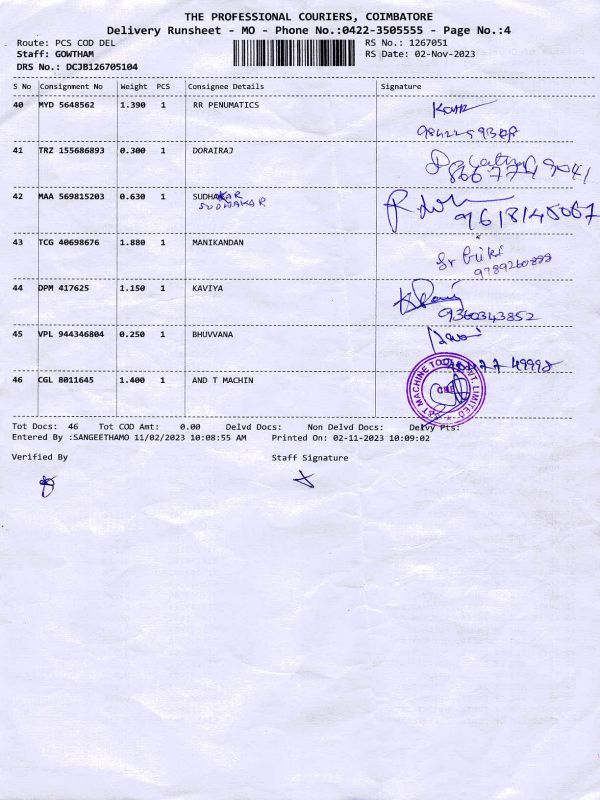 THE PROFESSIONAL COURIERS, COIMBATORE
Delivery Runsheet - MO - Phone No.:0422-3505555 - Page No.:4
Route: PCS COD DEL RS No.: 1267051
Staff: GOWTHAM RS Date: 02-Nov-2023
DRS No.: DCJB126705104
S No Consignment No Weight PCS Consignee Details Signature
40 MYD 5648562 1.390 1 RR PENUMATICS
41 TRZ 155686893 0.300 1 DORAIRAJ
42 MAA 569815203 0.630 1 SUDHAKAR
SUDHAKAR
9618145067
43 TCG 40698676 1.880 1 MANIKANDAN
9789260898
44 DPM 417625 1.150 1 KAVIYA
9360343852
45 VPL 944346804 0.250 1 BHUVVANA
46 CGL 8011645 1.400 1 AND T MACHIN
MACHINE TOOL PVT. LIMITED
CBE
Tot Docs: 46 Tot COD Amt: 0.00 Delvd Docs: Non Delvd Docs: Delvy Pts:
Entered By :SANGEETHAMO 11/02/2023 10:08:55 AM Printed On: 02-11-2023 10:09:02
Verified By Staff Signature